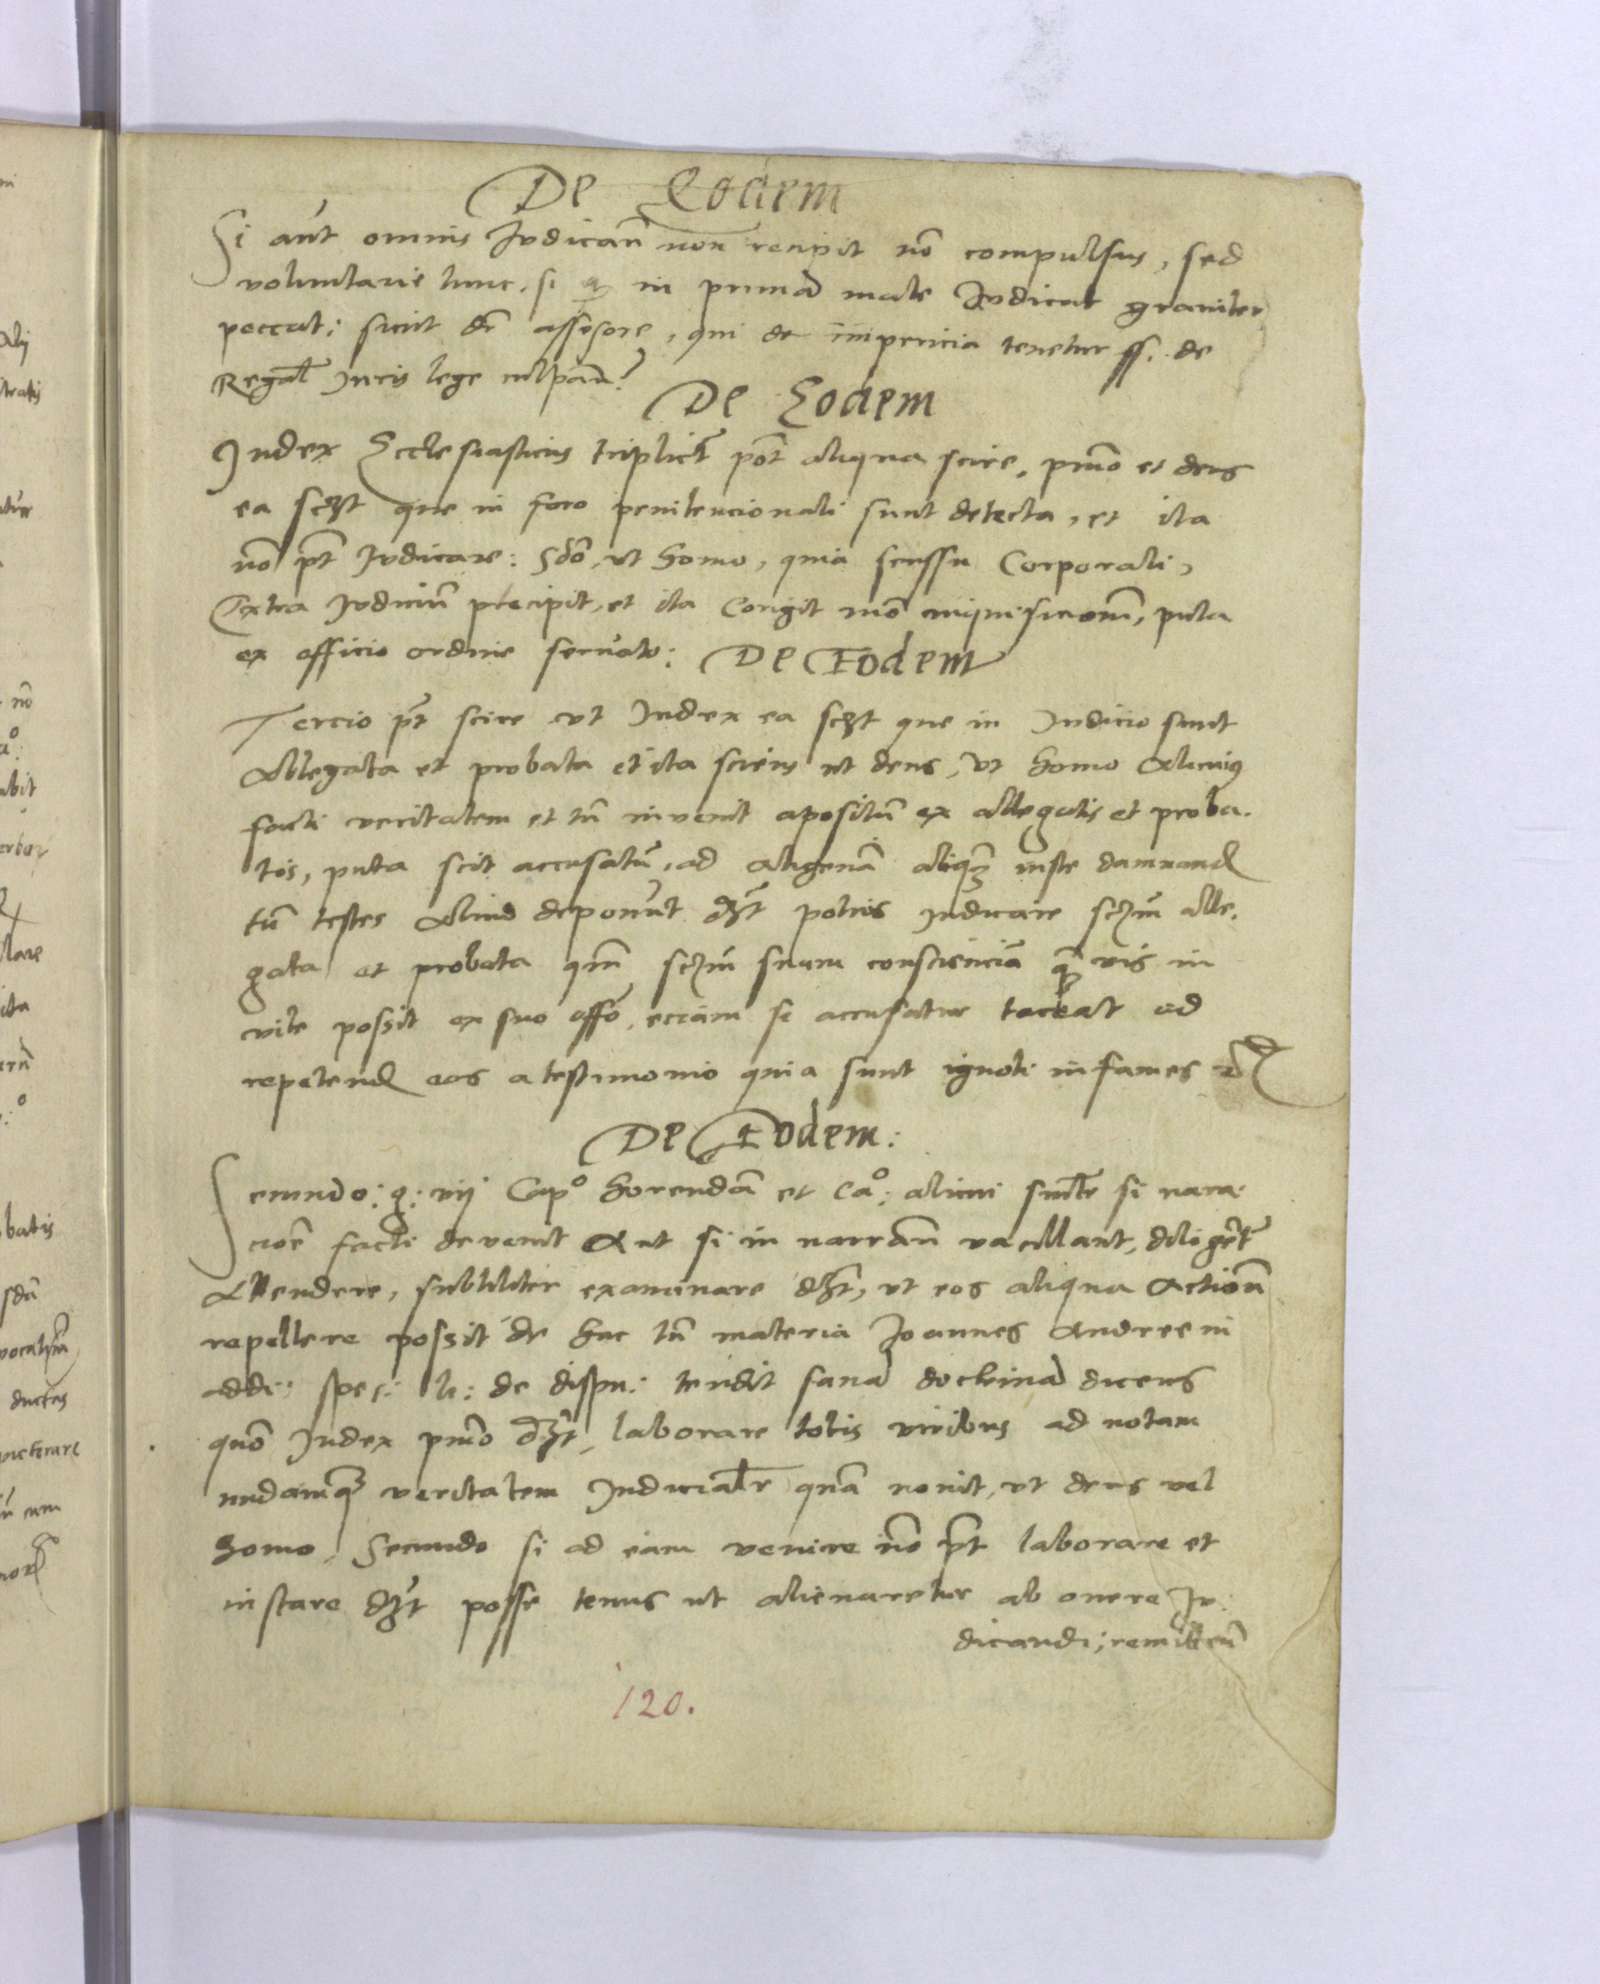 De Eodem
Si aūt omnis Iudicañ non recipit nō compulsus, sed
voluntarie tunc, si in prima male Iudicat graviter
peccat: sicut de assesore, qui de impericia tenetur ff. de
Regul Iuris lege culpañ?
De Eodem
Iudex Ecclesiasticus triplicit pōt aliqua scire, pmo et deus
ea sczt que in foro penitencionali sunt detecta, et ita
nō pt Iudicare: Sdo, ut homo, quia senssu Corporali,
Extra Iudiciū pleripit, et ita Corigit mō inquisicionis, puta
ex officio ordine servato: De Eodem
Tercio pt scire ut Iudex ea sczt que in Iudicio sunt
Allegata et probata et ita sciens ut deus, ut homo Alicuiꝫ
facti veritatem et tn̄ invenit apositū ex allegatis et proba.
tis, puta scit accusatū, ad aliqꝫ iuste damnand
tn̄ testes Aliud deponūt dꝫt potius iudicare scdm alle.
gata et probata qm̄ scdm suam consciēnciā qm̄ vis in
vite possit ex suo offo, eciam si accusatur taceat ad
repetend eos a testimonio quia sunt ignoti infames
De Eodem:
Secundo: q: vij Capº horendā et Caº: alicui smlr si nara.
cioe facti devenit Aut si in narrāñ vacillant, diligēt
Attendere, subtiliter examinare dꝫt, ut eos aliqua Actionē
repellere possit de hac tn̄ materia Joannes Andree in
addi: spec: ti: de dispu: tendit sanā doctrinā dicens
quō Iudex pmo dꝫt, laborare totis viribus ad notam
nudamqꝫ veritatem Iudicialr quā novit, ut deus vel
homo, Secundo si ad eam venire nō pt laborare et
instare dꝫt posse tenus ut alienaretur ab onere Iu:
dicandi; remitteñ
120.